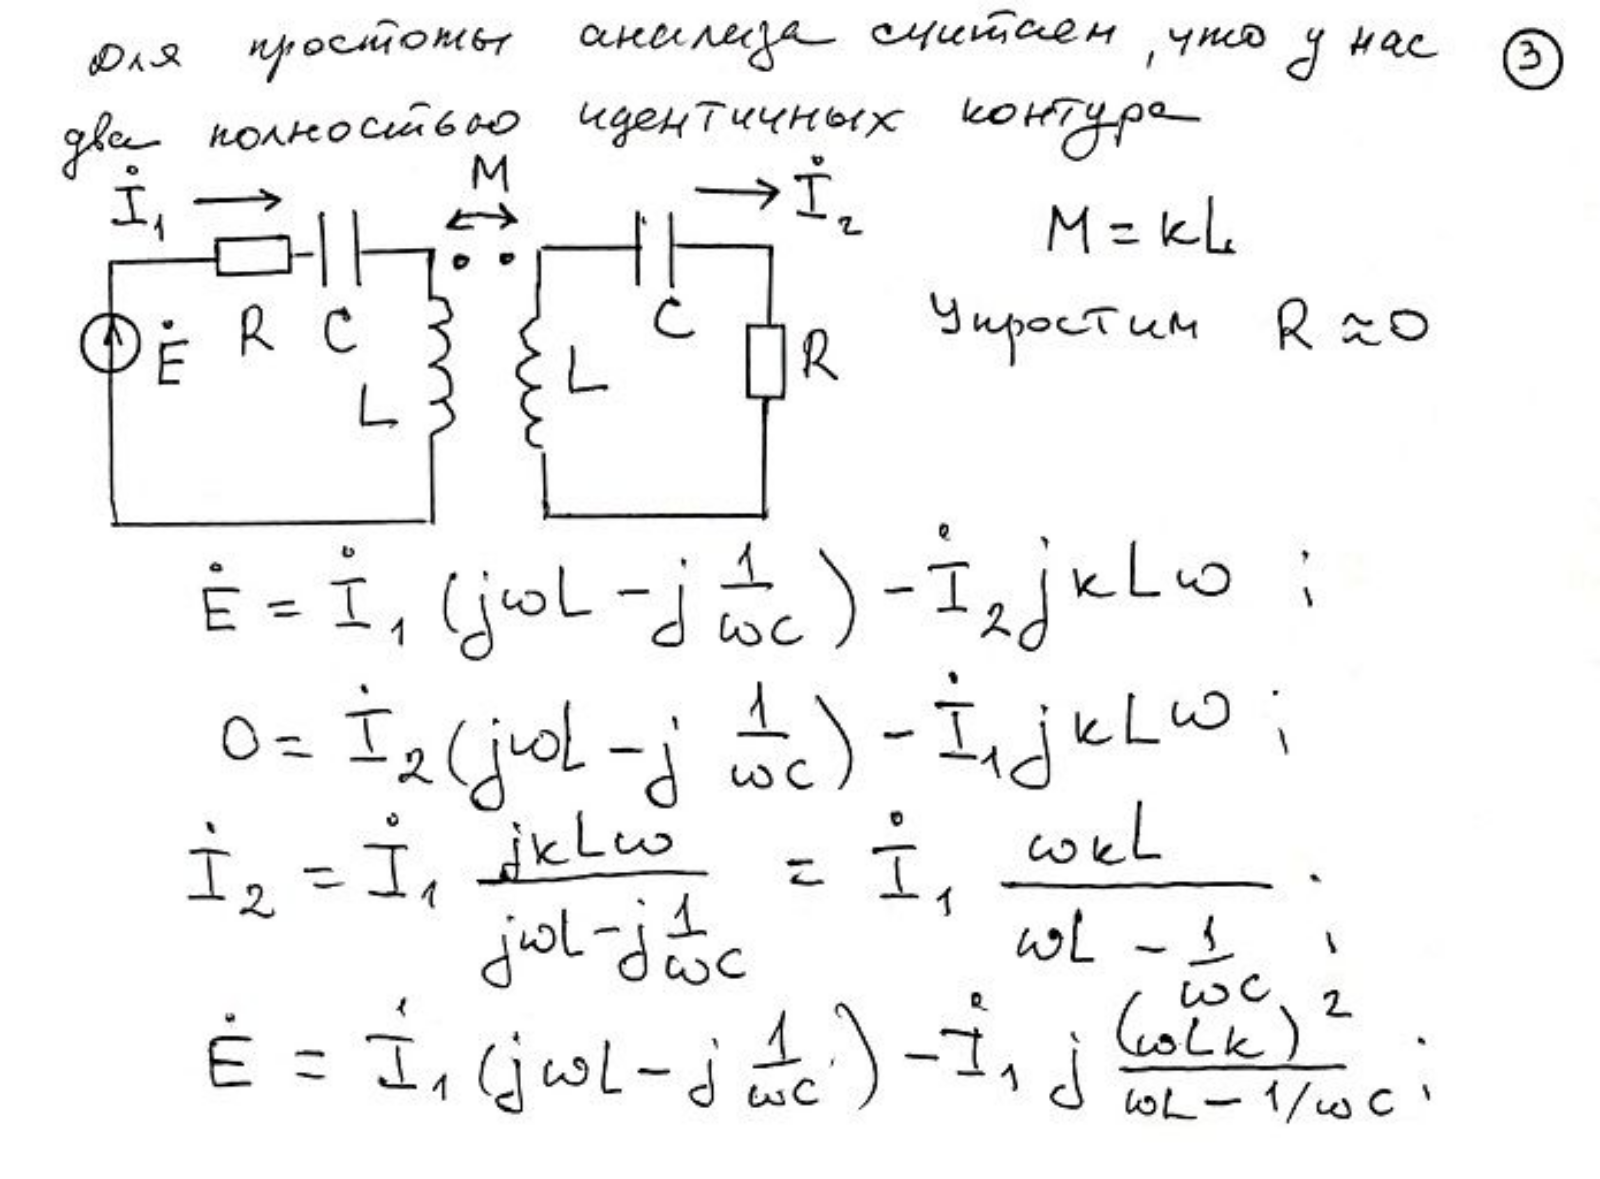 Для простоты анализа считаем, что у нас ③
два полностью идентичных контура
İ₁ M İ₂
M = kL
R C L L C R
Ė
Упростим R ≈ 0
Ė = İ₁ (jωL - j 1/ωC) - İ₂ jkLω ;
0 = İ₂ (jωL - j 1/ωC) - İ₁ jkLω ;
İ₂ = İ₁ jkLω/(jωL - j 1/ωC) = İ₁ ωkL/(ωL - 1/ωC) ;
Ė = İ₁ (jωL - j 1/ωC) - İ₁ j (ωLk)²/(ωL - 1/ωC) ;